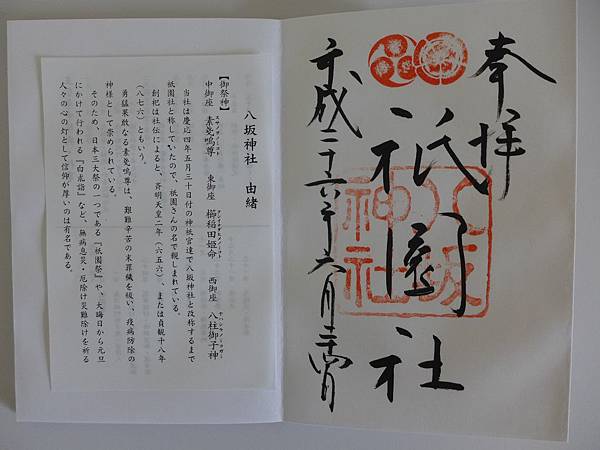 奉拝
祇園社
八坂神社
平成二十六年六月二十四日
八坂神社 由緒
【御祭神】
中御座 素戔嗚尊 東御座 櫛稲田姫命 西御座 八柱御子神
当社は慶応四年五月三十日付の神祇官達で八坂神社と改称するまで
祇園社と称していたので、祇園さんの名で親しまれている。
創祀は社伝によると、斉明天皇二年(六五六)、または貞観十八年
(八七六)ともいう。
勇猛果敢なる素戔嗚尊は、艱難辛苦の末罪穢を祓い、疫病防除の
神様として崇められている。
そのため、日本三大祭の一つである『祇園祭』や、大晦日から元旦
にかけて行われる『白朮詣』など、無病息災・厄除け災難除けを祈る
人々の心の灯として信仰が厚いのは有名である。